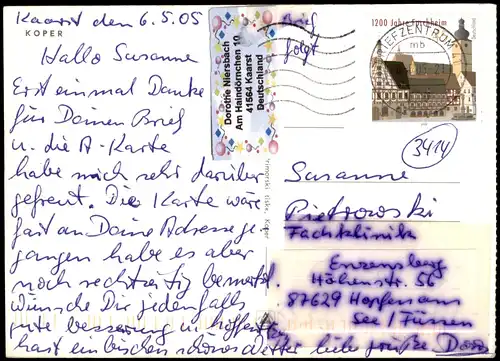 Kaarst den 6.5.05
KOPER
Hallo Susanne
Erst einmal Danke
für Deinen Brief
u. die A-Karte
habe mich sehr darüber
gefreut. Die Karte wäre
fast an Deine Adresse ge-
gangen habe es aber
noch rechtzeitig bemerkt
wünsche Dir jedenfalls
gute besserung u. hoffentl.
hast ein bischen schönes Wetter liebe grüße Doro
Dorothe Niersbach
Am Haindörnchen 10
41564 Kaarst
Deutschland
Brief
folgt
1200 Jahre Forchheim
BRIEFZENTRUM
mb
3414
Susanne
Pietrowski
Fachklinik
Enzensberg
Höhenstr. 56
87629 Hopfen am
See / Füssen